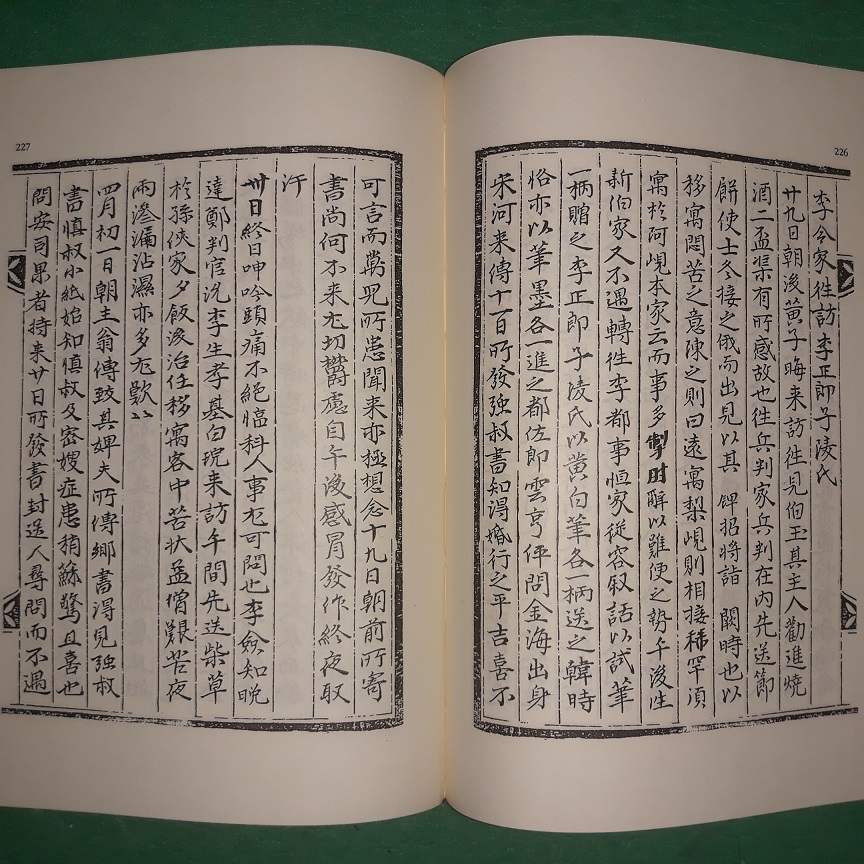 226
李令家徃訪李正郎子陵氏
廿九日朝後黃子晦来訪徃見伯玉其主人勸進燒
酒二盃渠有所感故也徃兵判家兵判在内先送節
餠使士冬接之俄而出見以其婢招將詣 闕時也以
移寓悶苦之意陳之則曰遠寓梨峴則相接稀罕湏
寓於阿峴本家云而事多 解以難便之勢午後徃
新伯家又不遇轉徃李都事恒家從容叙話以試筆
一柄贈之李正郎子陵氏以黃白筆各一柄送之韓時
恰亦以筆墨各一進之都佐郎雲亨伻問金海出身
宋河来傳十一日所發强叔書知得婚行之平吉喜不
227
可言而萬兒所患聞来亦極想念十九日朝前所寄
書尚何不来尤切欝慮自午後感冒發作終夜取
汗
卅日終日呻吟頭痛不絶臨科人事尤可悶也李知晩
達鄭判官洗李生孝基白琓来訪午間先送柴草
於孫俠家夕飯後治任移寓客中苦状益增艱苦夜
雨滲漏沾濕亦多尤歎〻
四月初一日朝主翁傳致其婢夫所傳鄕書得見强叔
書愼叔小紙始知愼叔及密嫂症患稍蘇驚且喜也
問安司果者持来廿日所發書封送人尋問而不遇